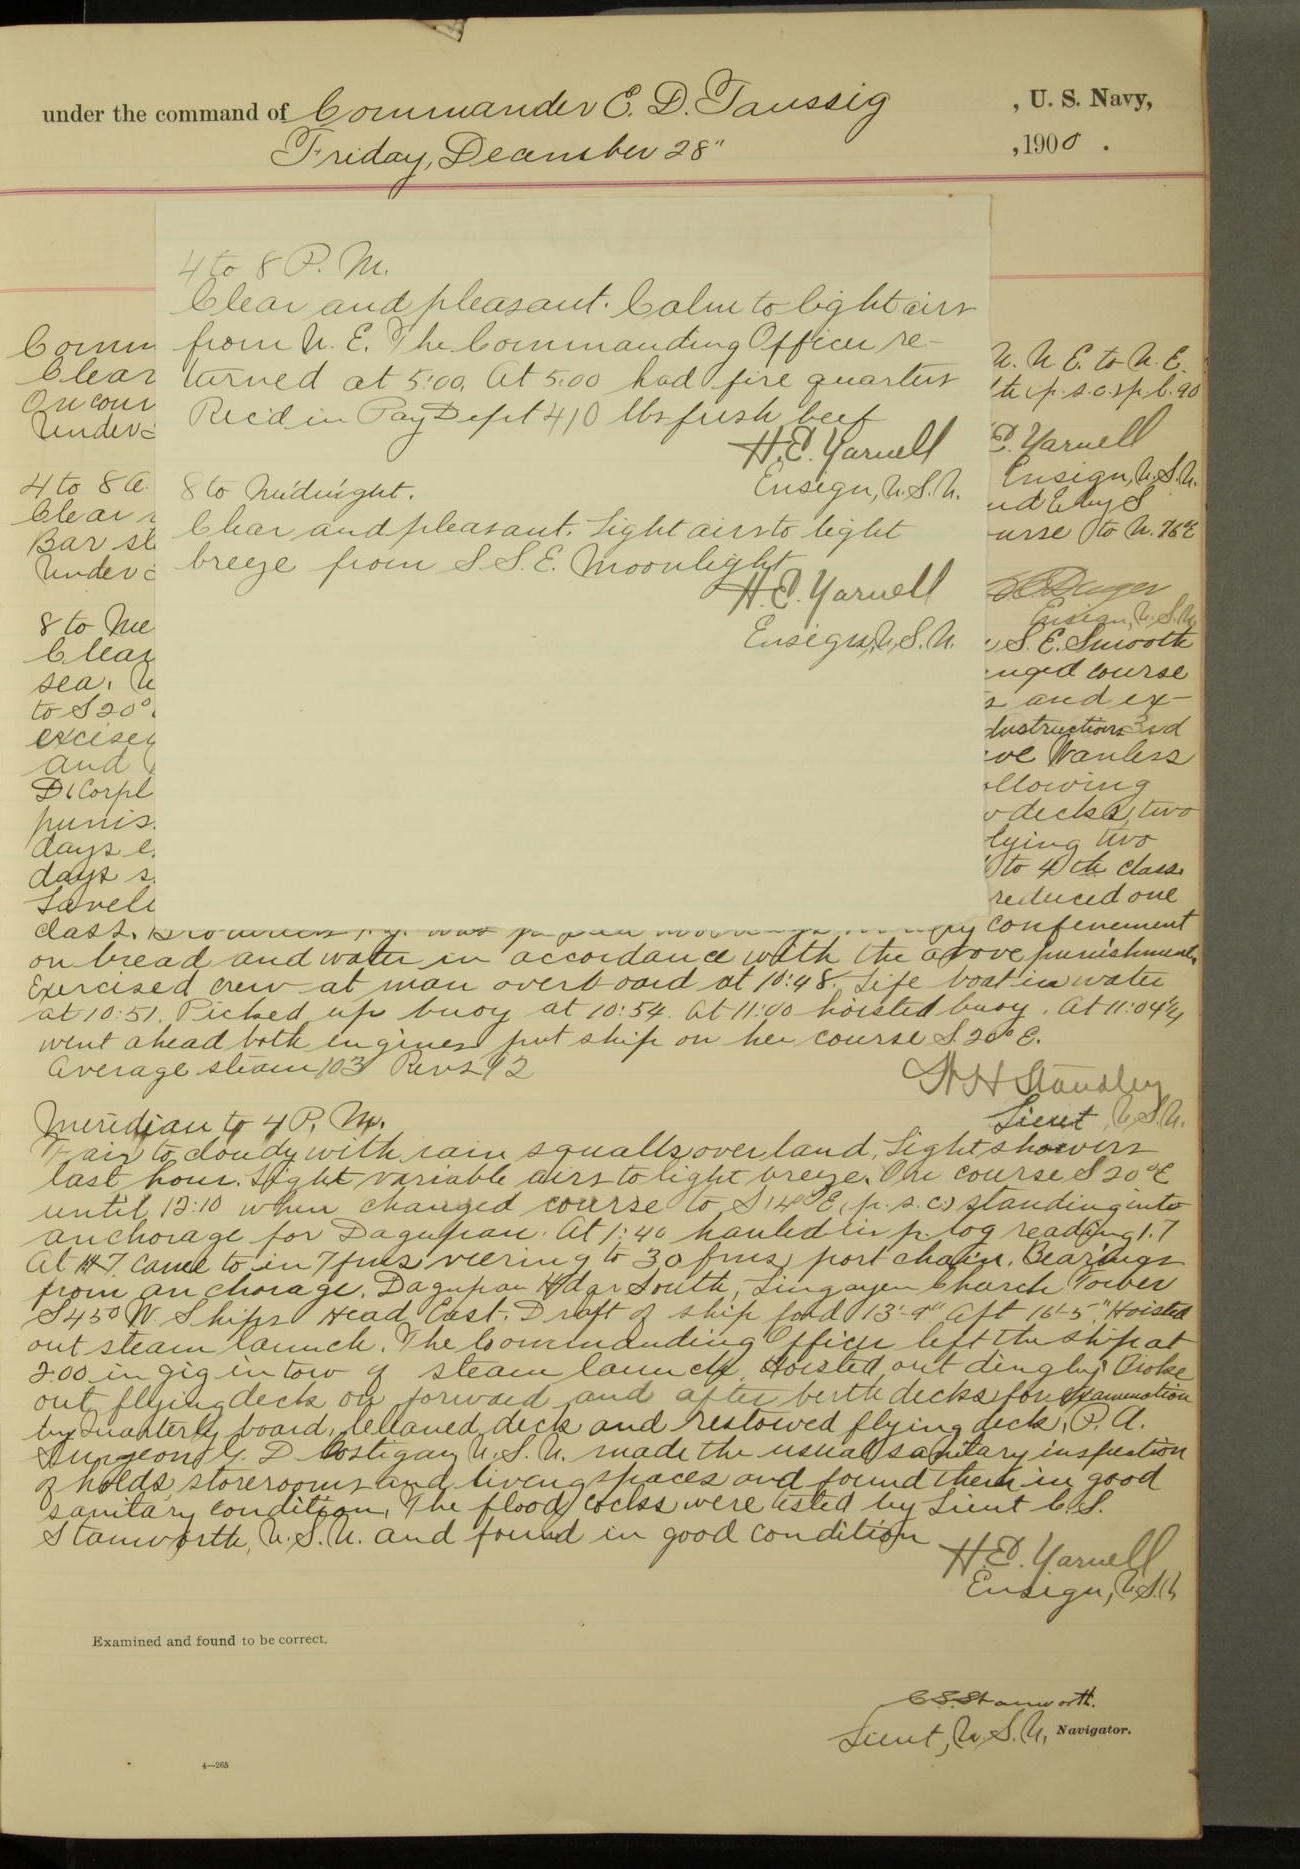 under the command of Commander E. D. Taussig , U. S. Navy,
Friday, December 28" , 1900 .
4 to 8 P. M.
Clear and pleasant. Calm to light airs
from N. E. The Commanding Officer re-
turned at 5:00. At 5:00 had fire quarters
Rec'd in Pay Dept 410 lbs fresh beef
H. E. Yarnell
Ensign, U. S. N.
8 to Midnight.
Clear and pleasant. Light airs to light
breeze from S. S. E. Moonlight
H. E. Yarnell
Ensign, U. S. N.
Comm
Clear N. N. E. to N. E.
On cour p. s. c. sp. l. 90
Under
E. Yarnell
Ensign, U. S. N.
4 to 8 A.
Clear and E by S
Bar st urse to N. 76° E
Under
Ensign, U. S. N.
8 to Me
Clear S. E. Smooth
sea. nged course
to S 20° and ex-
excisey Instructions
and Wanless
D (Corpl ollowing
punis decks, two
days e lying two
days s to 4th class
Lavel reduced one
class. confenement
on bread and water in accordance with the above punishments
Exercised crew at man overboard at 10:48. Life boat in water
at 10:51. Picked up buoy at 10:54. At 11:00 hoisted buoy. At 11:04
went ahead both engines put ship on her course S. 20° E.
Average steam 103 Revs 92
W H Standley
Lieut, U. S. N.
Meridian to 4 P. M.
Fair to cloudy with rain squalls over land. Light showers
last hour. Light variable airs to light breeze. On course S 20° E
until 12:10 when changed course to S 14° E (p. s. c.) standing into
anchorage for Dagupan. At 1:40 hauled in p log reading 1.7
At 7 came to in 7 fms veering to 30 fms port chain. Bearings
from anchorage, Dagupan Hdqr South, Lingayen Church Tower
S 45° W. Ships Head East. Draft of ship ford 13'-9" aft 16'-5" Hoisted
out steam launch. The Commanding Officer left the ship at
2:00 in gig in tow of steam launch. Hoisted out dinghy. Broke
out flying deck on forward and after berth decks for examination
by Quarterly board, cleaned deck and restowed flying deck. P. A.
Surgeon G. D Costigan U. S. N. made the usual sanitary inspection
of holds, storerooms and living spaces and found them in good
sanitary condition. The flood cocks were tested by Lieut C. S.
Stanworth, U. S. N. and found in good condition
H. E. Yarnell
Ensign, U. S. N.
Examined and found to be correct.
C S. Stanworth.
Lieut, U. S. N, Navigator.
4—265